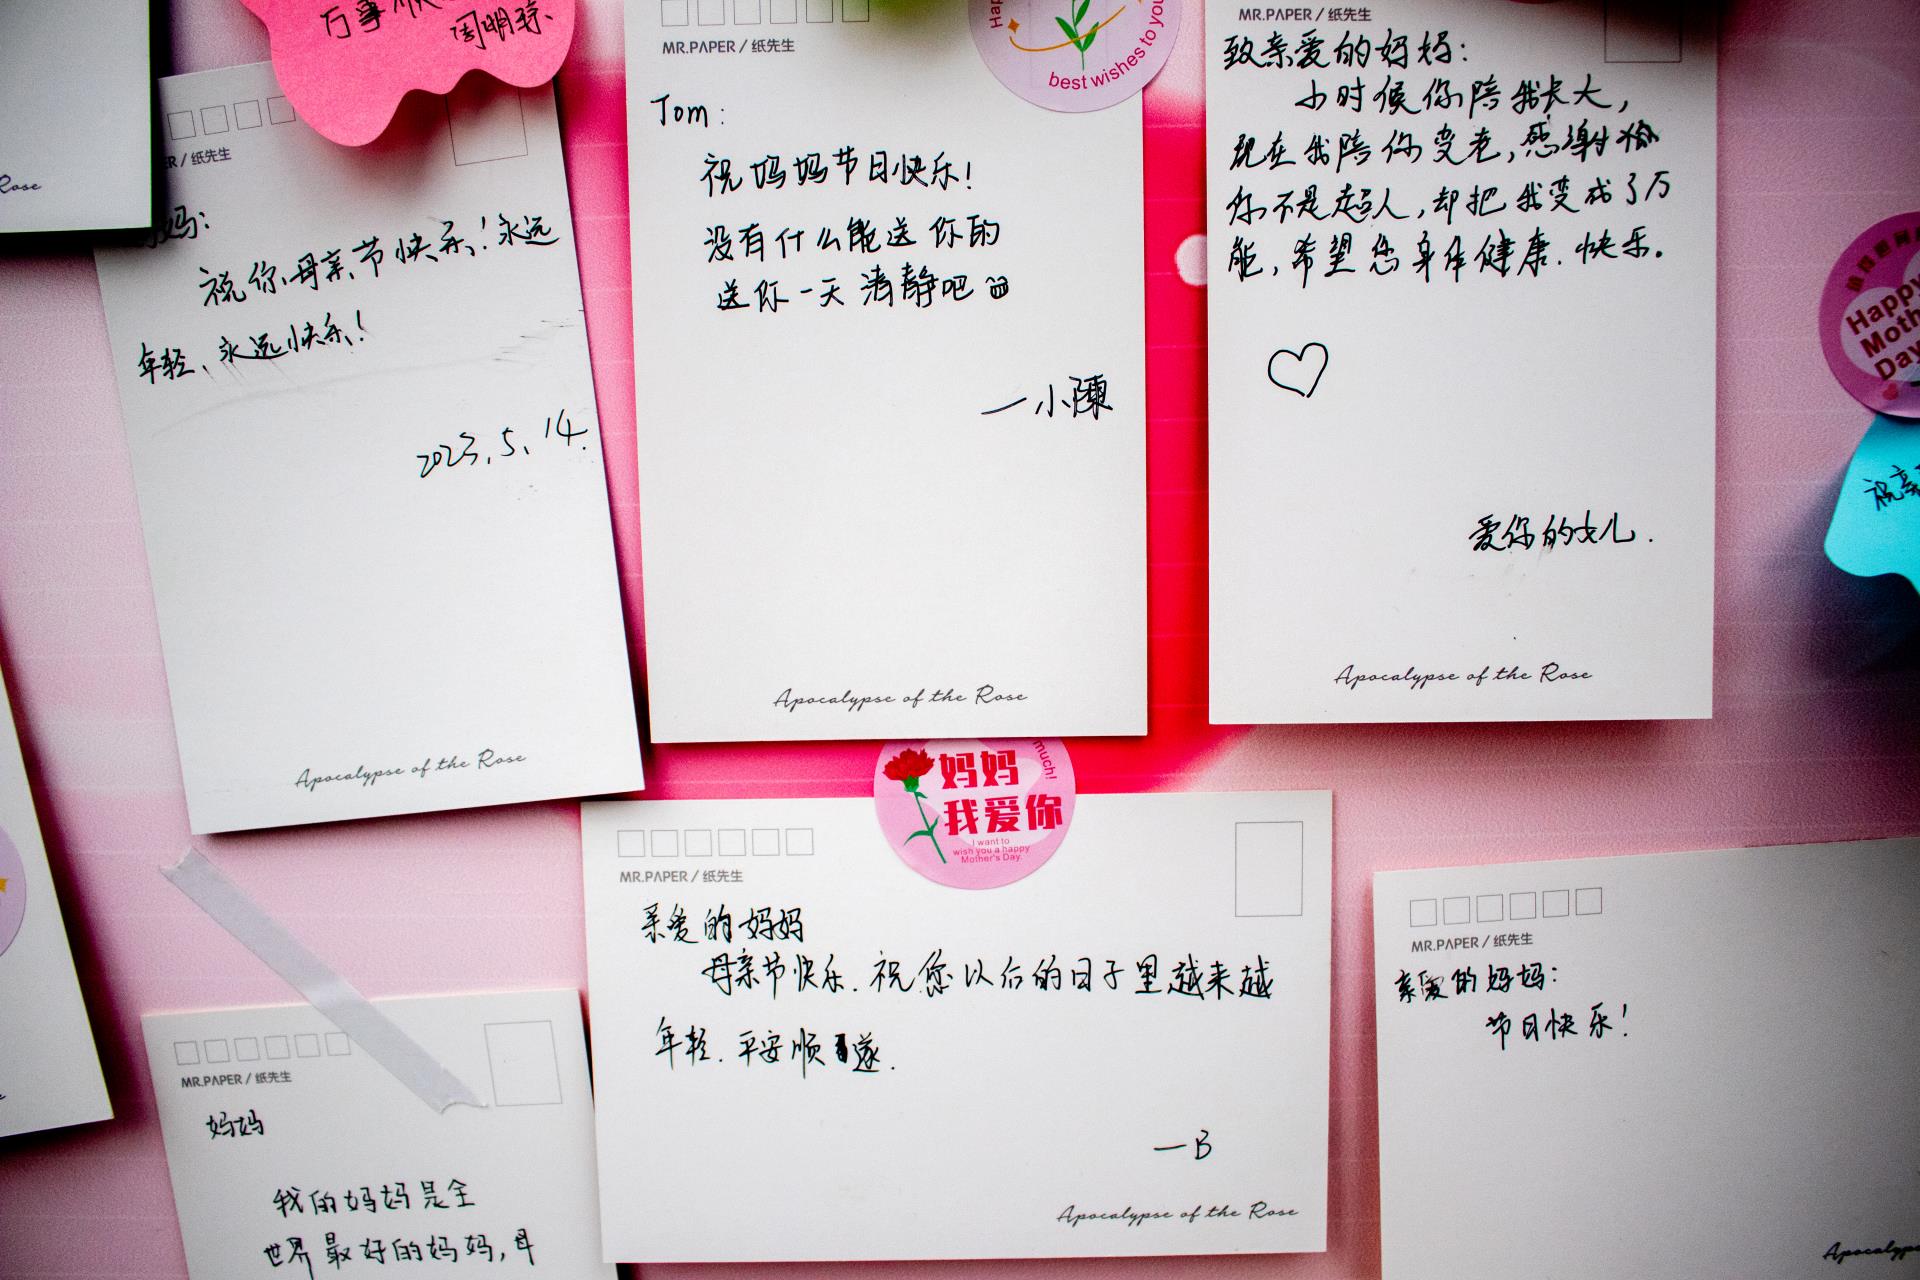 万事顺
周明琼
Rose
ER / 纸先生
妈:
祝你母亲节快乐!永远
年轻、永远快乐!
2023.5.14.
Apocalypse of the Rose
MR.PAPER / 纸先生
best wishes to you
Tom:
祝妈妈节日快乐!
没有什么能送你的
送你一天清静吧
一小陳
Apocalypse of the Rose
MR.PAPER / 纸先生
致亲爱的妈妈:
小时候你陪我长大,
现在我陪你变老,感谢
你不是超人,却把我变成了万
能,希望您身体健康.快乐。
爱你的女儿.
Apocalypse of the Rose
Happy
Moth
Day
祝亲
much!
妈妈
我爱你
I want to
wish you a happy
Mother's Day.
MR.PAPER / 纸先生
亲爱的妈妈
母亲节快乐.祝您以后的日子里越来越
年轻.平安顺遂.
—B
Apocalypse of the Rose
MR.PAPER / 纸先生
妈妈
我的妈妈是全
世界最好的妈妈,母
MR.PAPER / 纸先生
亲爱的妈妈:
节日快乐!
Apocalyps